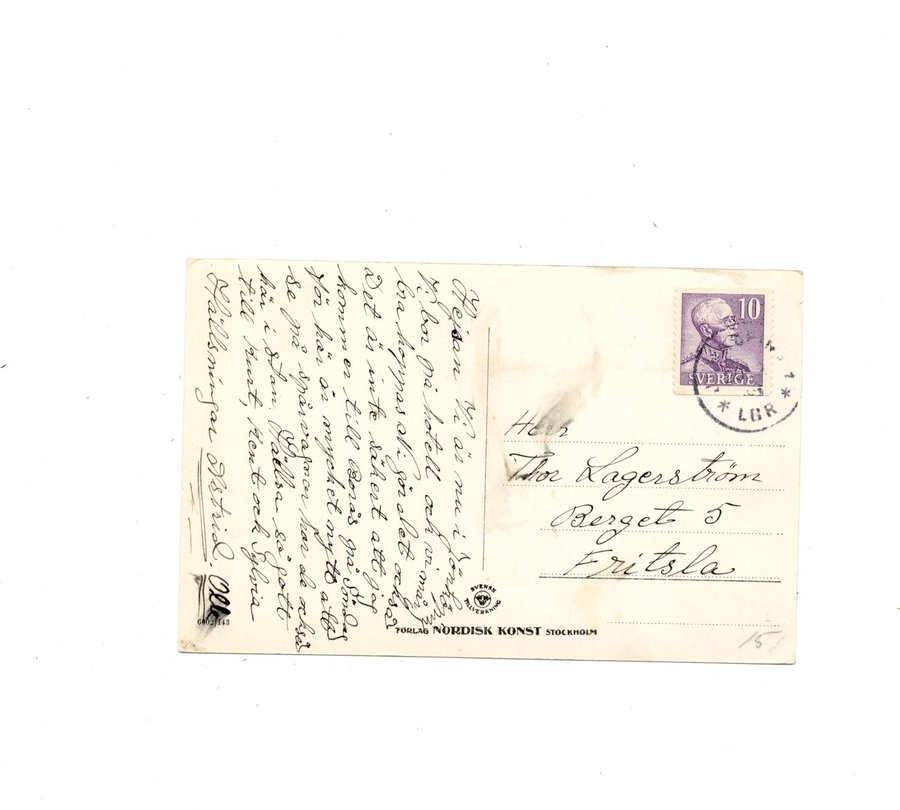 Hejsan Vi är nu i Jönkö-
ping
Vi bor på hotell och vi mår
bra hoppas Ni gör det också
Det är inte säkert att jag
kommer till Borås på Söndag
för här är mycket nytt att
se på spårvagnar har de också
här i stan. Hälsa så gott
till Kurt, Kent och Sylvia
Hälsningar Astrid. Olle
10
SVERIGE
* LBR *
Herr
Thor Lagerström
Berget 5
Fritsla
SVENSK
TILLVERKNING
FÖRLAG NORDISK KONST STOCKHOLM
15